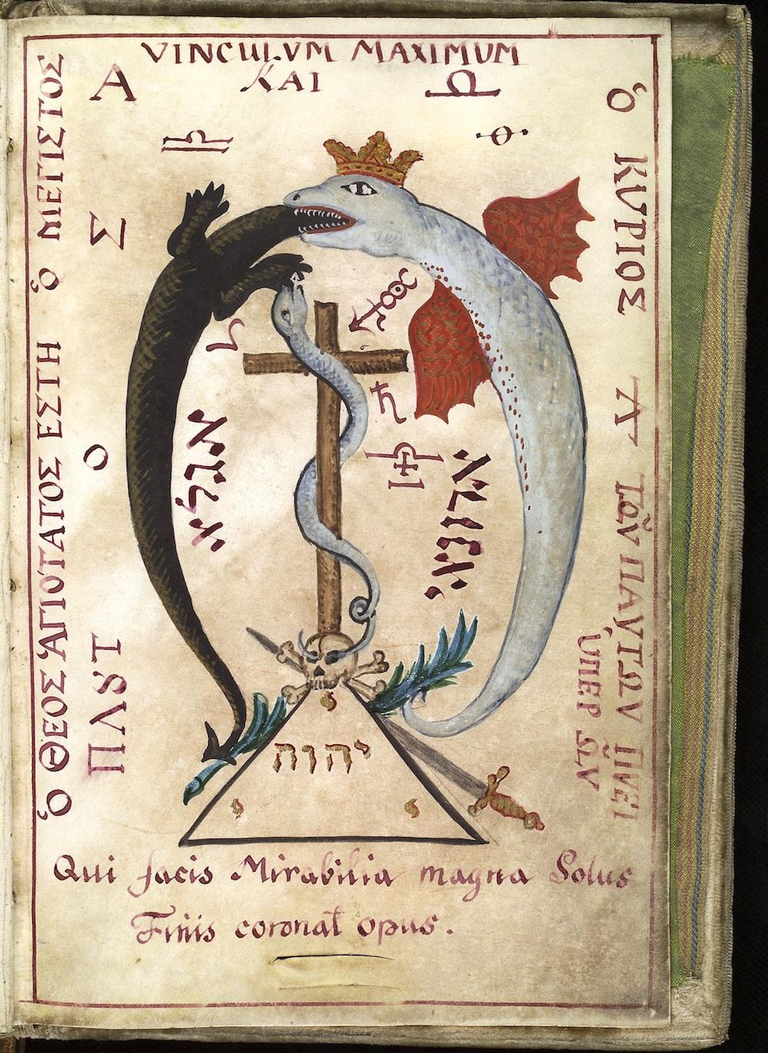 VINCULVM MAXIMUM
ΚΑΙ
Ὁ ΘΕΟΣ ἉΓΙΟΤΑΤΟΣ ΕΣΤΗ Ὁ ΜΕΓΙΣΤΟΣ
Α
Σ
Ο
Ὁ ΚΥΡΙΟΣ ΤΩΝ
ὙΠΕΡ ΩΝ
אגלא
יהוה
Qui facis Mirabilia magna Solus
Finis coronat opus.